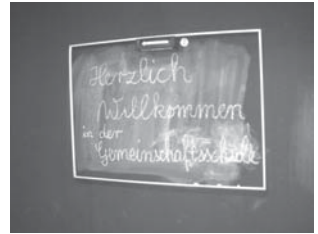 Herzlich
Willkommen
in der
Gemeinschaftsschule